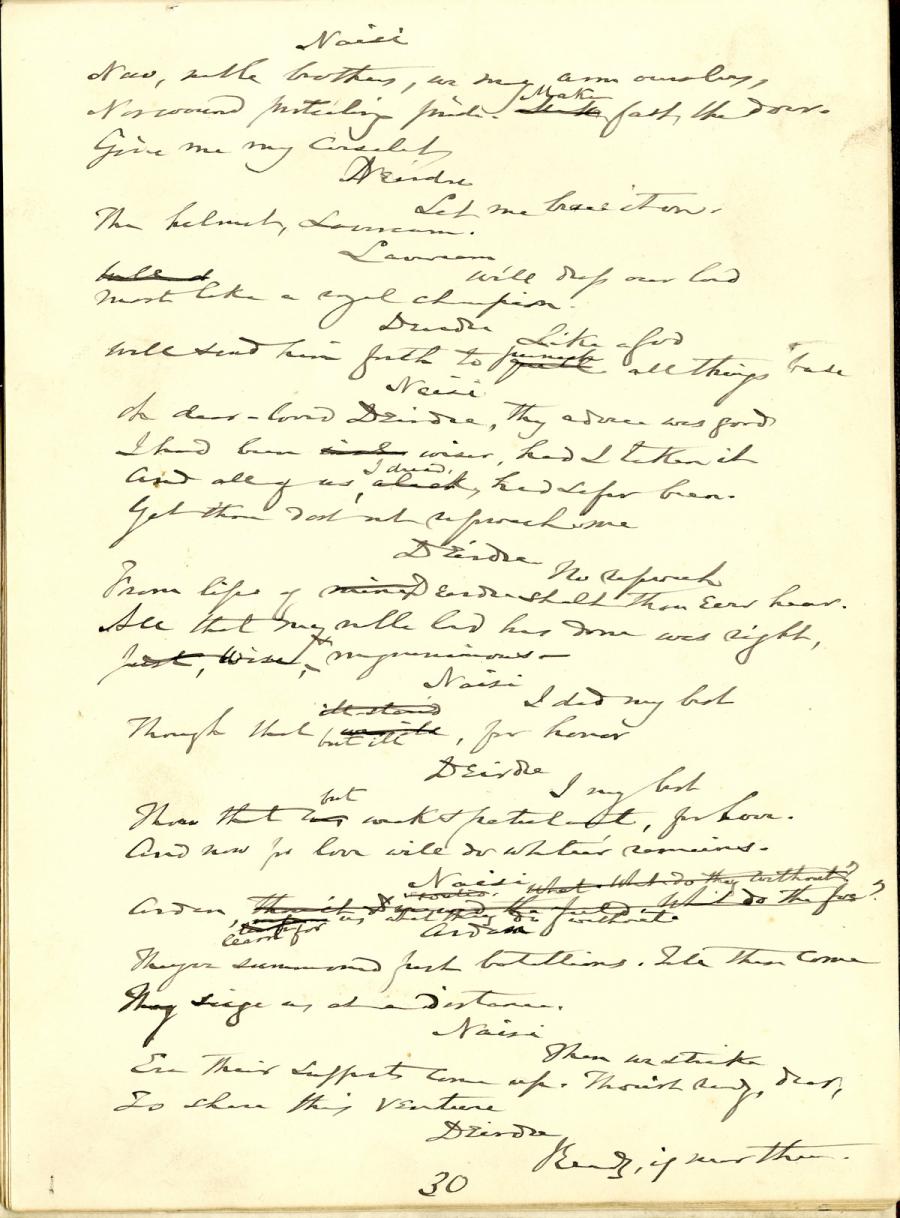 Naisi
Now, noble brothers, we may arm ourselves,
No wound pride. Make fast the door.
Give me my corselet,
Deirdre
Let me brace it on.
The helmet, Lavarcam.
Lavarcam
will dress our lord
most like a royal champion.
Deirdre
Like a God
will send him forth to punish all things base
Naisi
Oh dear-loved Deirdre, thy advice was good
I had been wiser, had I taken it
And all of us, I dread, had safer been.
Yet thou dost not reproach me
Deirdre
No reproach
From lips of mine Deirdre shalt thou ever hear.
All that my noble lord has done was right,
Just, wise, magnanimous—
Naisi
I did my best
Though that ill stand
but ill, for honor
Deirdre
I my best
but
Thou that was weak & petulant, for love.
And now for love will do whate'er remains.
Naisi
What do they without?
Ardan, What do the foe?
Learn for us what they do without
Ardan
They've summoned fresh battalions. Till these come
They siege us at a distance.
Naisi
Then we strike
Ere their supports come up. Thou'rt ready, dear,
To share this venture
Deirdre
Ready, if near thee.
30